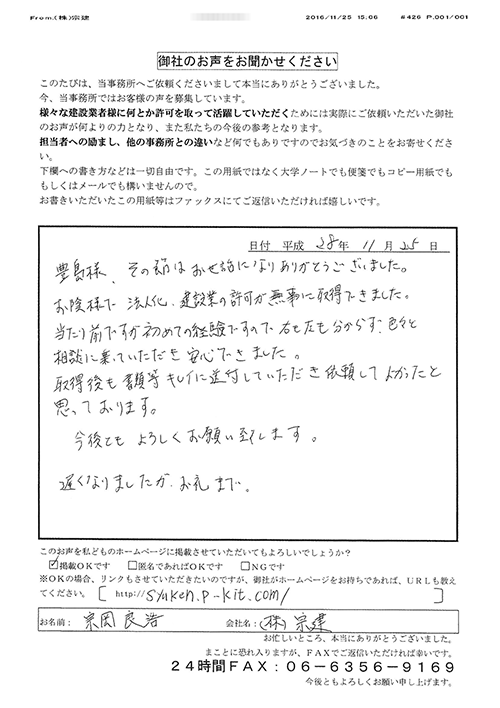 From:(株)宗建 2016/11/25 15:06 #426 P.001/001
御社のお声をお聞かせください
このたびは、当事務所へご依頼くださいまして本当にありがとうございました。
今、当事務所ではお客様の声を募集しています。
様々な建設業者様に何とか許可を取って活躍していただくためには実際にご依頼いただいた御社
のお声が何よりの力となり、また私たちの今後の参考となります。
担当者への励まし、他の事務所との違いなど何でもありですのでお気づきのことをお寄せくださ
い。
下欄への書き方などは一切自由です。この用紙ではなく大学ノートでも便箋でもコピー用紙でも
もしくはメールでも構いませんので。
お書きいただいたこの用紙等はファックスにてご返信いただければ嬉しいです。
日付 平成 28年 11月 25日
豊島様、その節はお世話になりありがとうございました。
お陰様で 法人化、建設業の許可が無事に取得できました。
当たり前ですが初めての経験ですので右も左も分からず色々と
相談に乗っていただき安心できました。
取得後も書類等キレイに送付していただき依頼してよかったと
思っております。
今後とも よろしくお願い致します。
遅くなりましたが、お礼まで。
このお声を私どものホームページに掲載させていただいてもよろしいでしょうか?
☑掲載OKです □匿名であればOKです □NGです
※OKの場合、リンクもさせていただきたいのですが、御社がホームページをお持ちであれば、URLも教え
てください。[ http://syuken.p-kit.com/ ]
お名前: 宗岡良浩 会社名: (株)宗建
お忙しいところ、本当にありがとうございました。
まことに恐れ入りますが、FAXでご返信いただければ幸いです。
24時間FAX:06-6356-9169
今後ともよろしくお願い申し上げます。